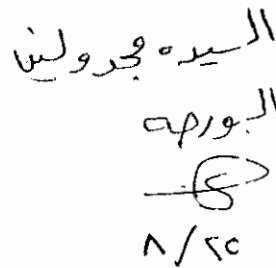 السيده مجدولين
البورصه
٨/٢٥